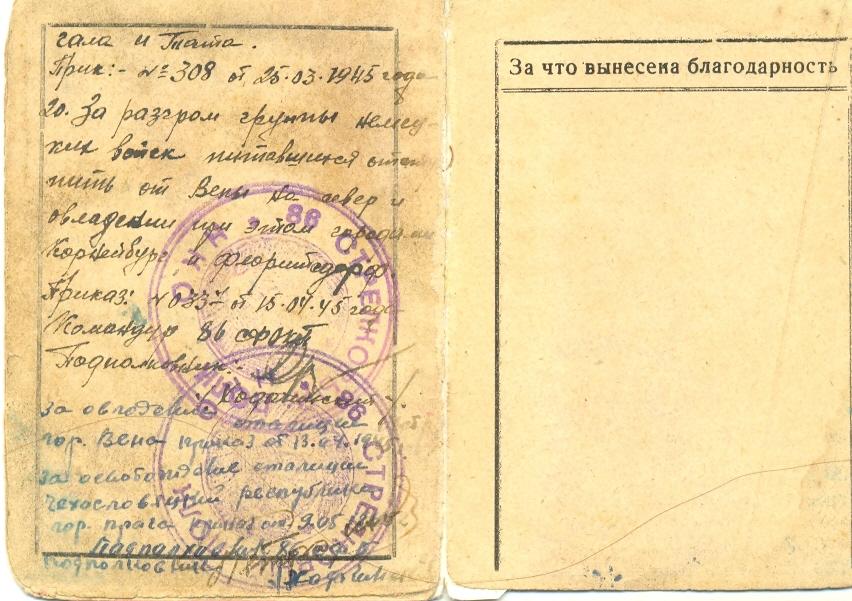 гала и Тата.
Прик:- № 308 от 25.03.1945 года
20. За разгром группы немец-
ких войск пытавшихся отсту-
пить от Вены на север и
овладении при этом городами
Корнейбург и Флоридсдорф.
Приказ: № 0337 от 15.04.45 года
Командир 86
Подполковник:
за овладение столицей
гор. Вена приказ от 13.04.1945
за освобождение столицы
Чехословацкий республика
гор. прага приказ от 9.05.1945
подполковник
86 СТРЕЛКО
86 СТРЕЛ
За что вынесена благодарность